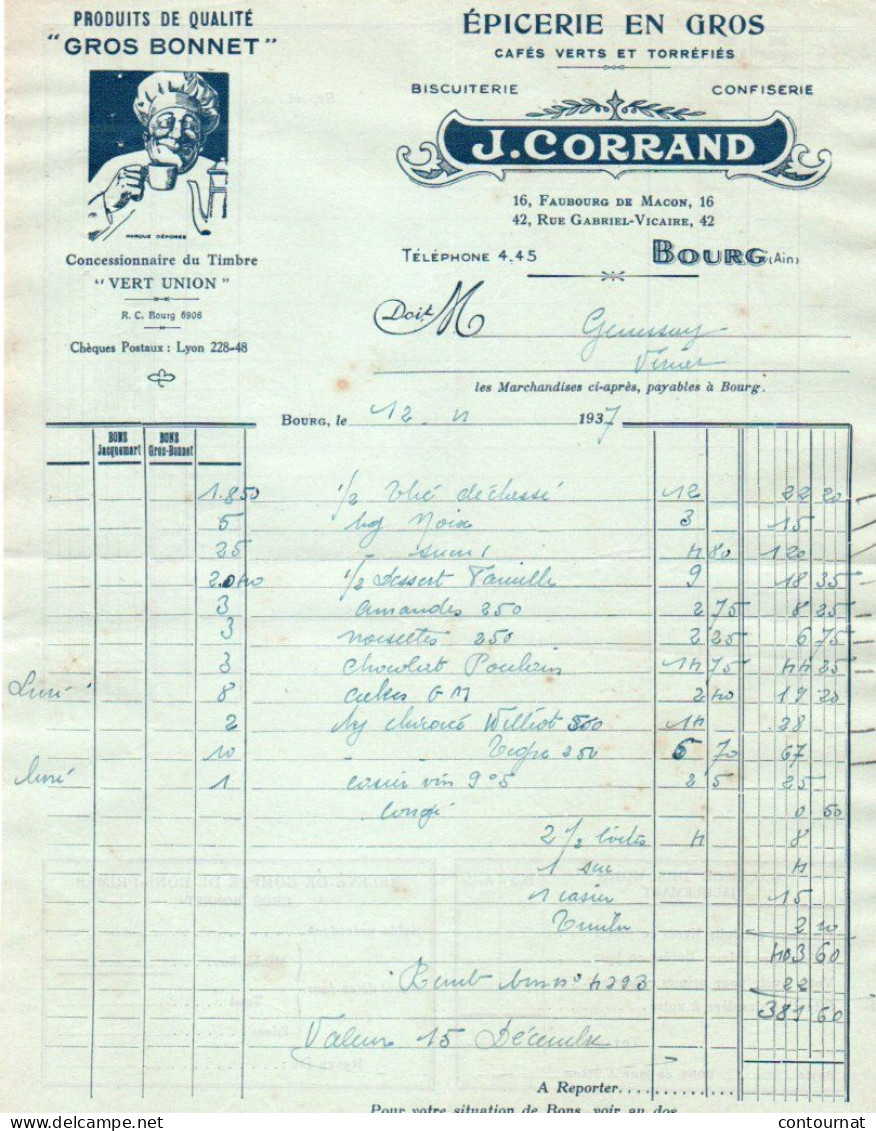 PRODUITS DE QUALITÉ
"GROS BONNET"
MARQUE DÉPOSÉE
Concessionnaire du Timbre
"VERT UNION"
R. C. Bourg 6906
Chèques Postaux : Lyon 228-48
ÉPICERIE EN GROS
CAFÉS VERTS ET TORRÉFIÉS
BISCUITERIE CONFISERIE
J. CORRAND
16, FAUBOURG DE MACON, 16
42, RUE GABRIEL-VICAIRE, 42
TÉLÉPHONE 4.45 BOURG (Ain)
Doit M
les Marchandises ci-après, payables à Bourg.
BOURG, le 12 11 1937
BONS Jacquemart BONS Gros-Bonnet
1.850 1/2 thé 12 22 20
5 kg Noix 3 15
25 sucre 4 80 120
2.040 1/2 Dessert Famille 9 18 35
3 amandes 250 2 75 8 25
3 noisettes 250 2 25 6 75
3 chocolat Poulain 14 75 44 25
8 cakes G M 2 40 19 20
2 kg chicorée Williot 500 14 28
10 Tigre 250 6 70 67
1 casier vin 9°5 25 25
congé 0 50
2 1/2 boîtes 4 8
1 sac 4
1 casier 15
Timbre 2 10
403 60
Remb bons n° 4293 22
381 60
Valeur 15 Décembre
A Reporter
Pour votre situation de Bons, voir au dos
delcampe.net
contournat